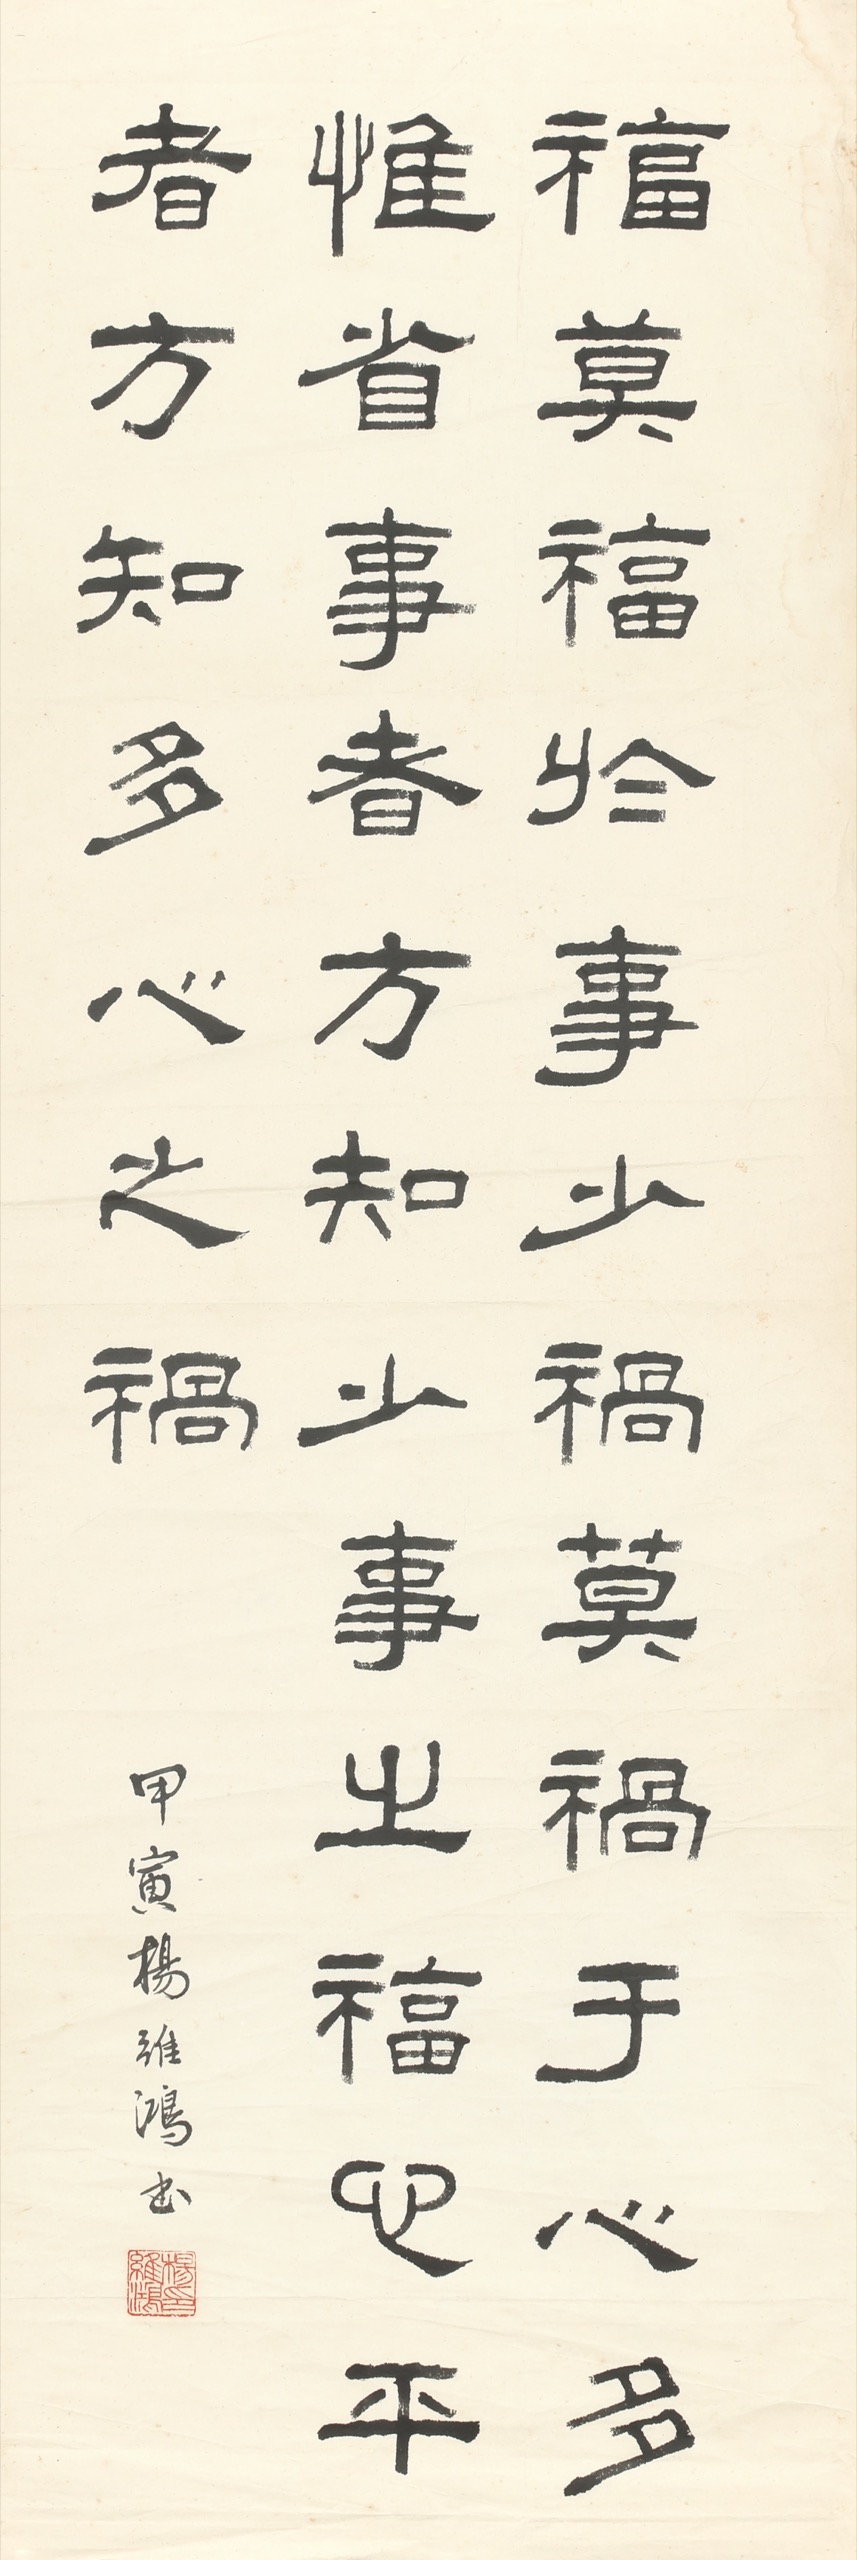 福莫福於事少禍莫禍于心多
惟省事者方知少事之福心平
者方知多心之禍
甲寅楊維鴻書
楊印維鴻